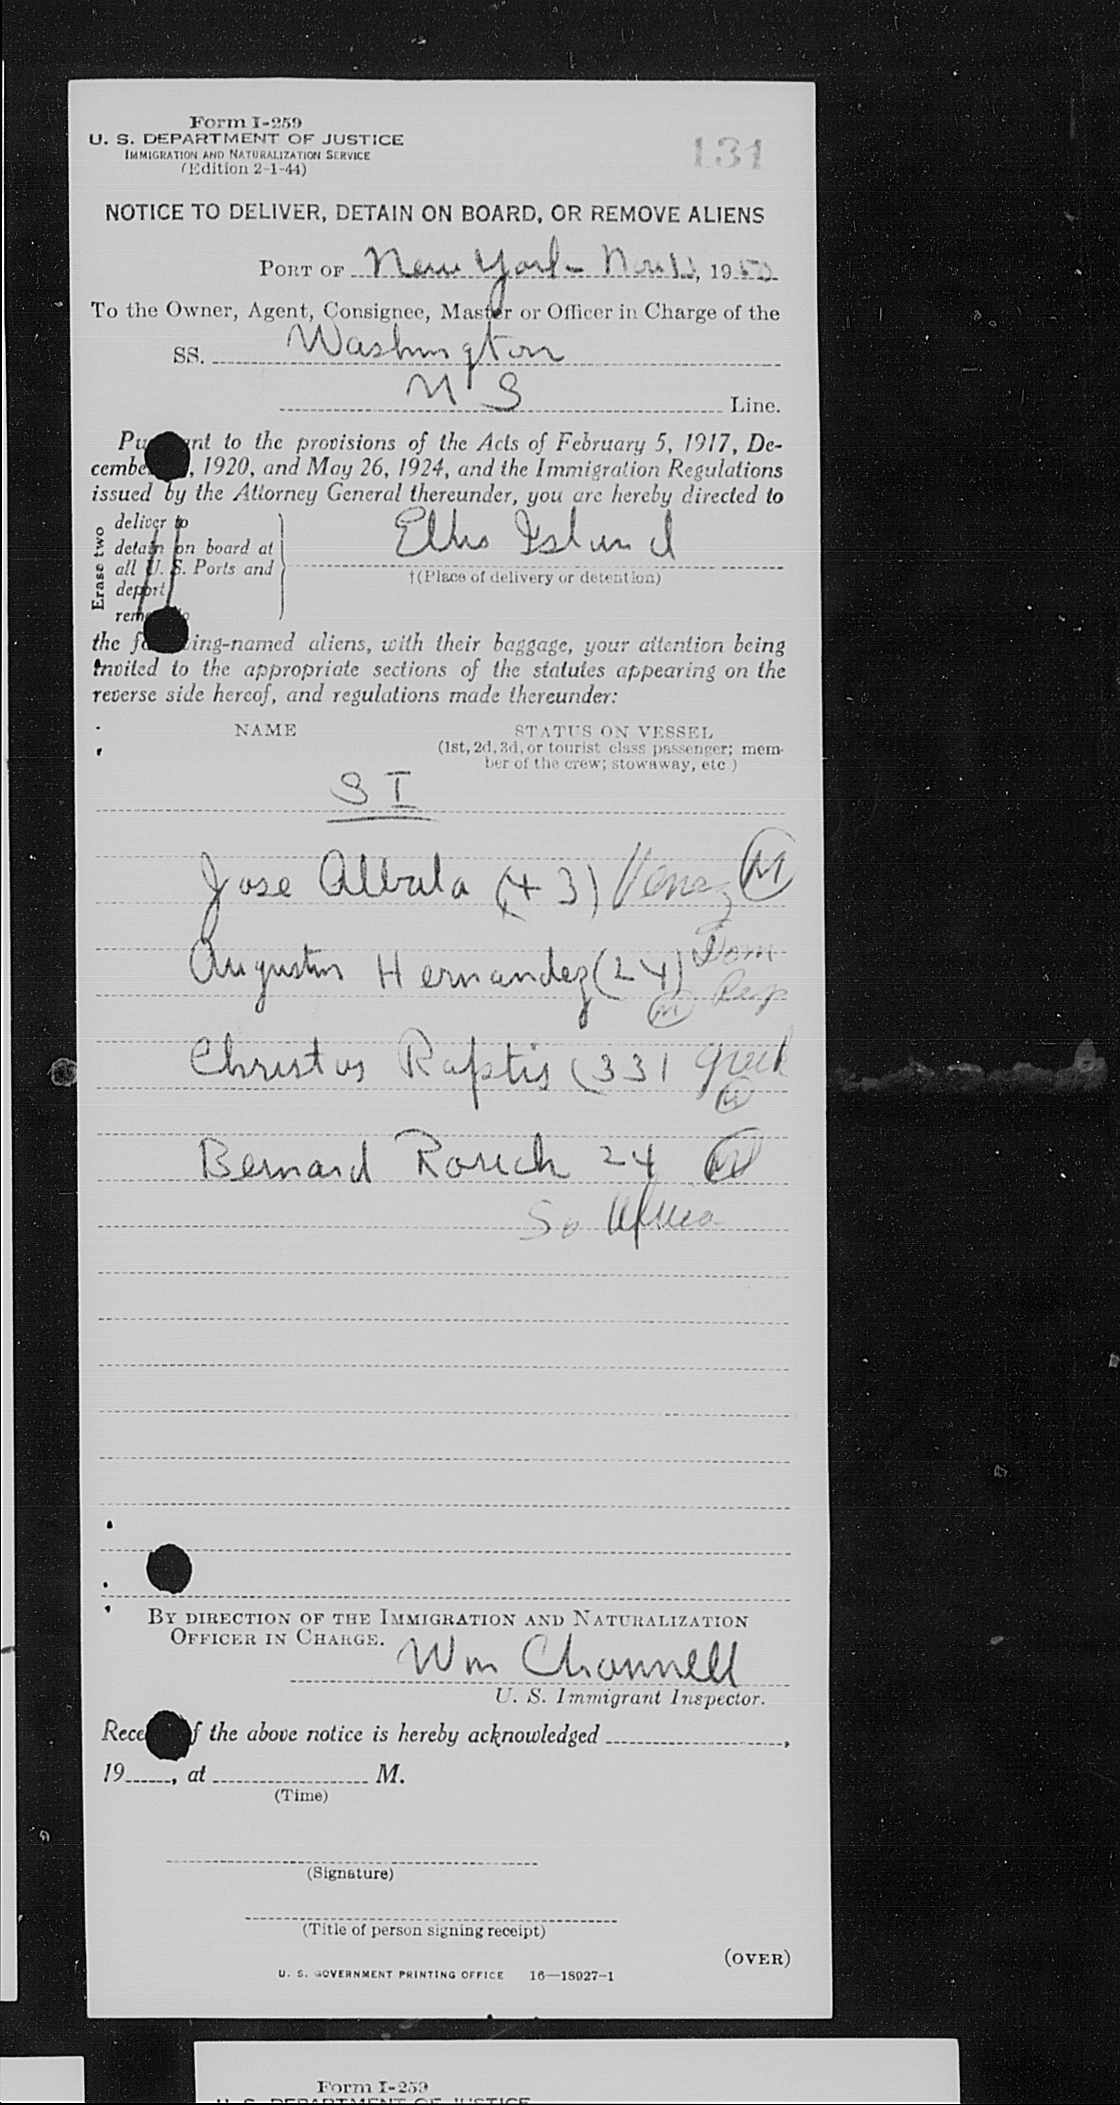 Form I-259
U. S. DEPARTMENT OF JUSTICE
IMMIGRATION AND NATURALIZATION SERVICE
(Edition 2-1-44)
131
NOTICE TO DELIVER, DETAIN ON BOARD, OR REMOVE ALIENS
PORT OF New York , 1950
To the Owner, Agent, Consignee, Master or Officer in Charge of the
SS. Washington
U S Line.
nt to the provisions of the Acts of February 5, 1917, De-
cembe , 1920, and May 26, 1924, and the Immigration Regulations
issued by the Attorney General thereunder, you are hereby directed to
Erase two
deliver to
detain on board at
all U. S. Ports and
deport
Ellis Island
†(Place of delivery or detention)
the ing-named aliens, with their baggage, your attention being
invited to the appropriate sections of the statutes appearing on the
reverse side hereof, and regulations made thereunder:
NAME STATUS ON VESSEL
(1st, 2d, 3d, or tourist class passenger; mem-
ber of the crew; stowaway, etc.)
S I
Jose Albala (43) Venez M
Augustus Hernandez (24) Dom
M Rep
Christus Raptis (33) Greek
M
Bernard 24 M
So Africa
BY DIRECTION OF THE IMMIGRATION AND NATURALIZATION
OFFICER IN CHARGE.
Wm Channell
U. S. Immigrant Inspector.
Rece f the above notice is hereby acknowledged ,
19 , at M.
(Time)
(Signature)
(Title of person signing receipt)
(OVER)
U. S. GOVERNMENT PRINTING OFFICE 16—18927-1
Form I-259
U. S. DEPARTMENT OF JUSTICE